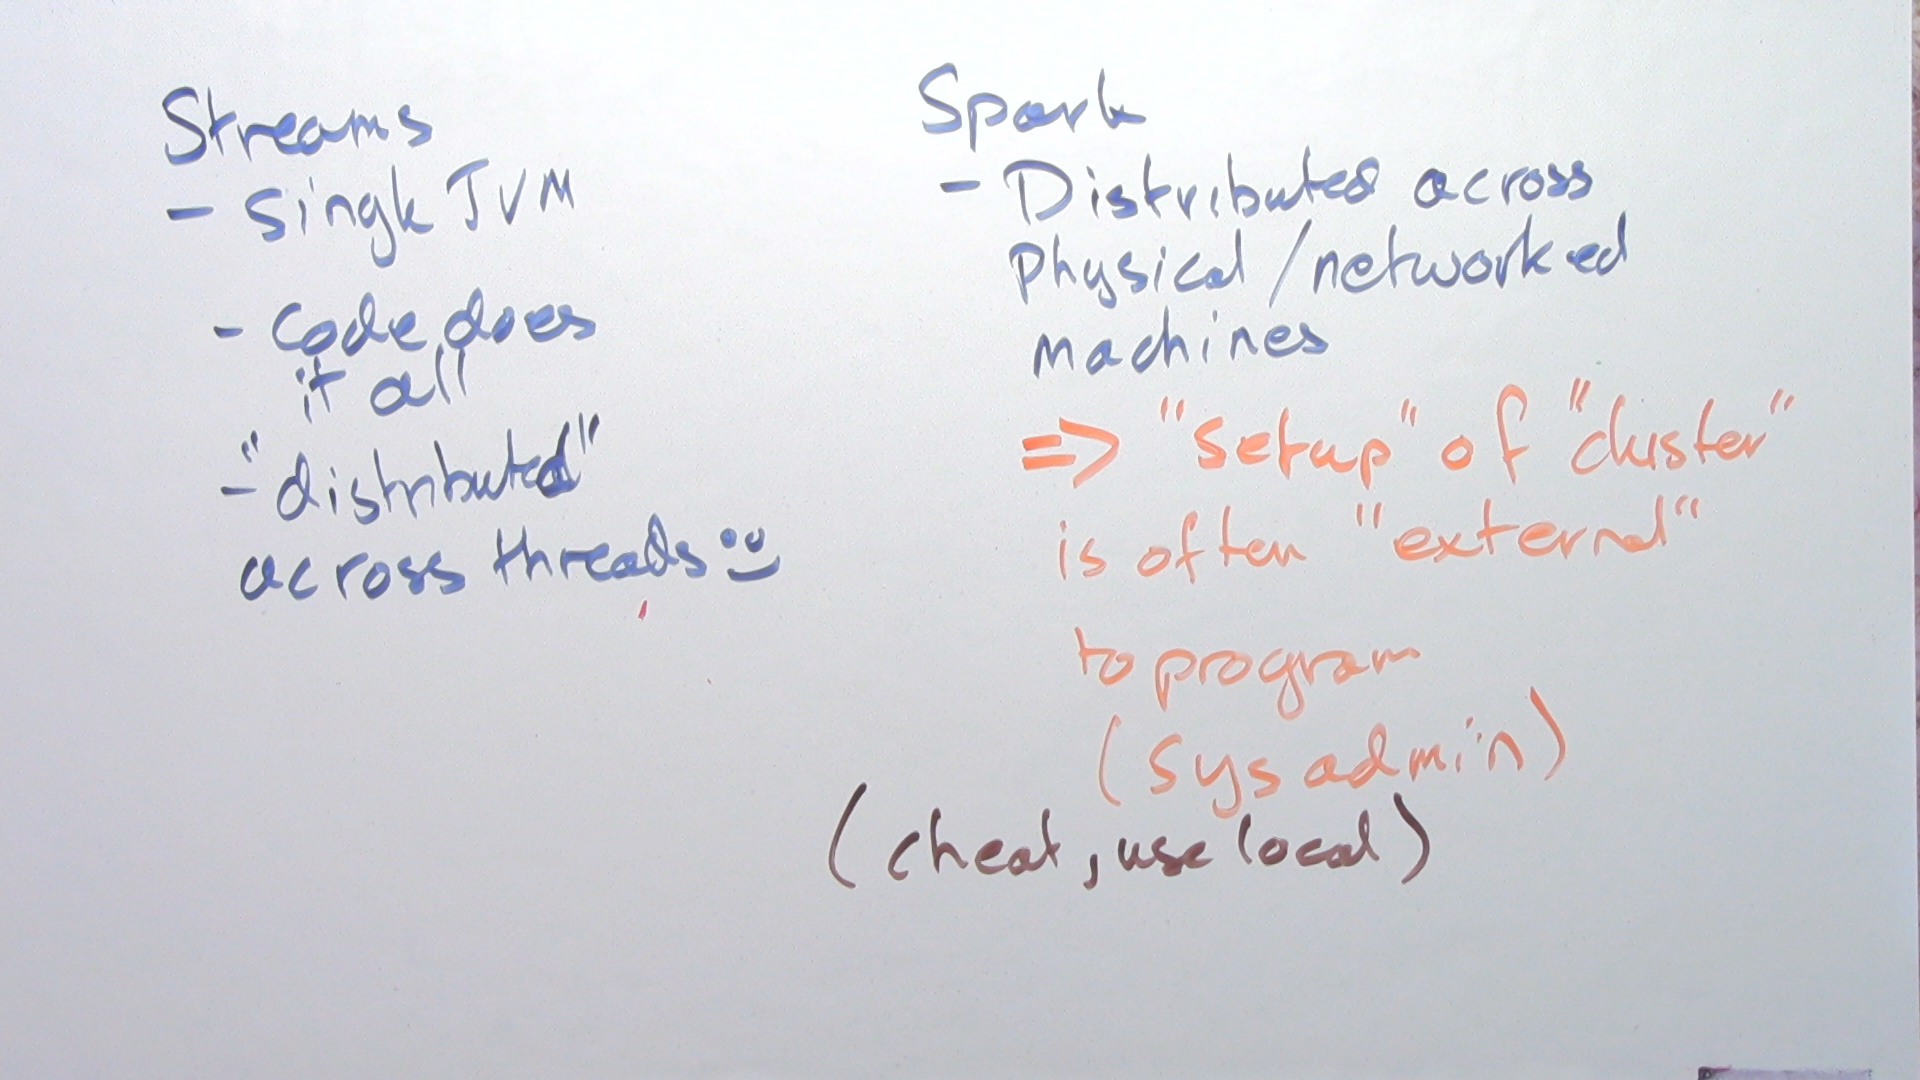 Streams
- Single JVM
- Code does
it all
- "distributed"
across threads
Spark
- Distributed across
physical/networked
machines
=> "setup" of "cluster"
is often "external"
to program
(sys admin)
(cheat, use local)